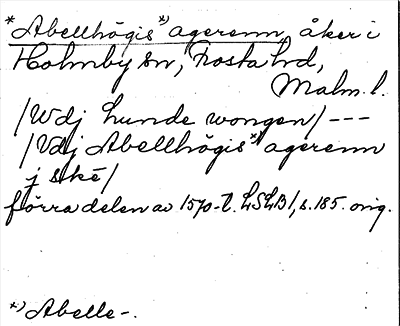 *Abellhögis*) agerenn, åker i
Holmby sn, Frosta hd,
Malm. l.
/Wdj Lunde wongen/ ---
/Vdj Abellhögis*) agerenn
j ské/
förra delen av 1570-t. LSLB1, s. 185. orig.
*) Abelle-.